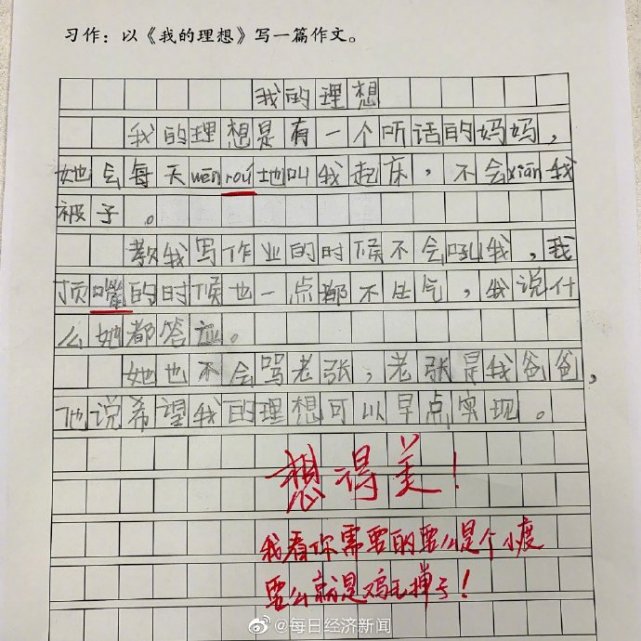 习作：以《我的理想》写一篇作文。
我的理想
我的理想是有一个听话的妈妈，
她会每天wēn róu地叫我起床，不会xiān我
被子。
教我写作业的时候不会吼我，我
顶嘴的时候也一点都不生气，我说什
么她都答应。
她也不会骂老张，老张是我爸爸，
他说希望我的理想可以早点实现。
想得美！
我看你需要的要么是个小鹿
要么就是鸡毛掸子！
@每日经济新闻